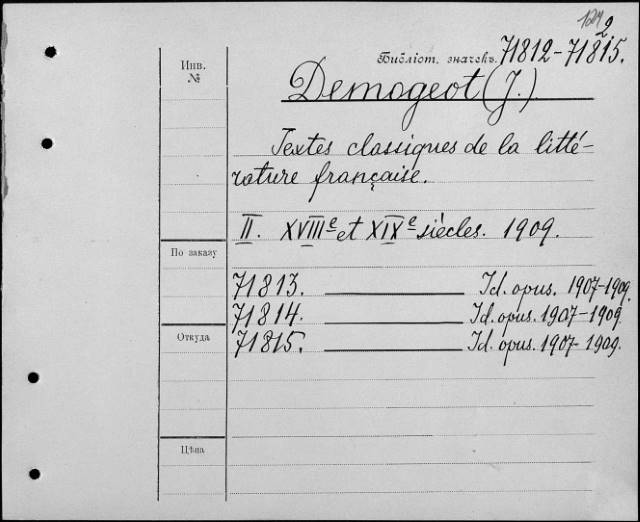 2
Инв.
№
Библіот. значекъ. 71812-71815.
Demogeot (J.)
Textes classiques de la litté-
rature française.
II. XVIIIe et XIXe siècles. 1909.
По заказу
71813. Id. opus. 1907-1909.
71814. Id. opus. 1907-1909
Откуда
71815. Id. opus. 1907-1909.
Цѣна